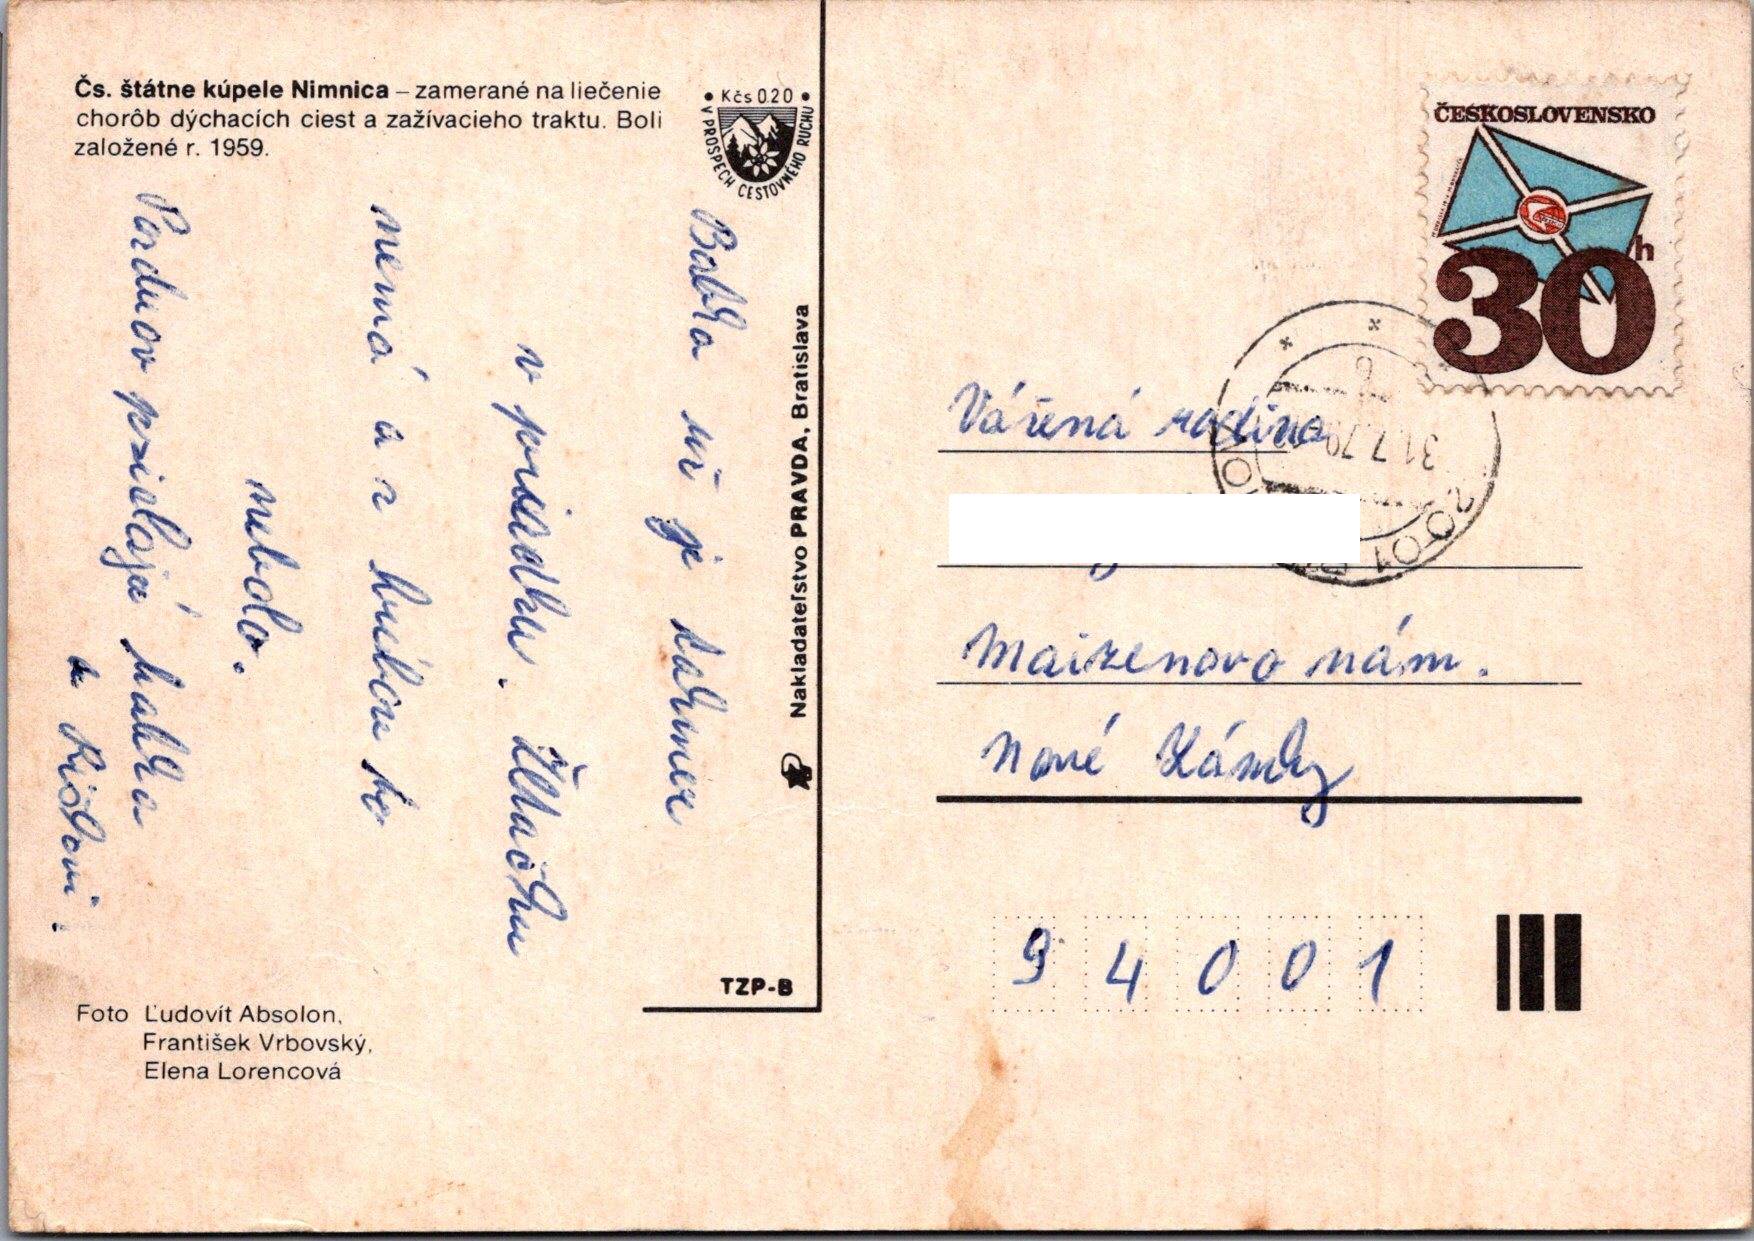 Čs. štátne kúpele Nimnica – zamerané na liečenie
chorôb dýchacích ciest a zažívacieho traktu. Boli
založené r. 1959.
• Kčs 0.20 •
V PROSPECH CESTOVNÉHO RUCHU
Babka už je takmer
v poriadku. Žltačku
nemá a z hubov to
nebolo.
Pozdrav posielajú babka
Nakladateľstvo PRAVDA, Bratislava
TZP-B
Foto Ľudovít Absolon,
František Vrbovský,
Elena Lorencová
ČESKOSLOVENSKO
30 h
31.7.79
Vážená rodina
Maizenovo nám.
Nové Zámky
94001